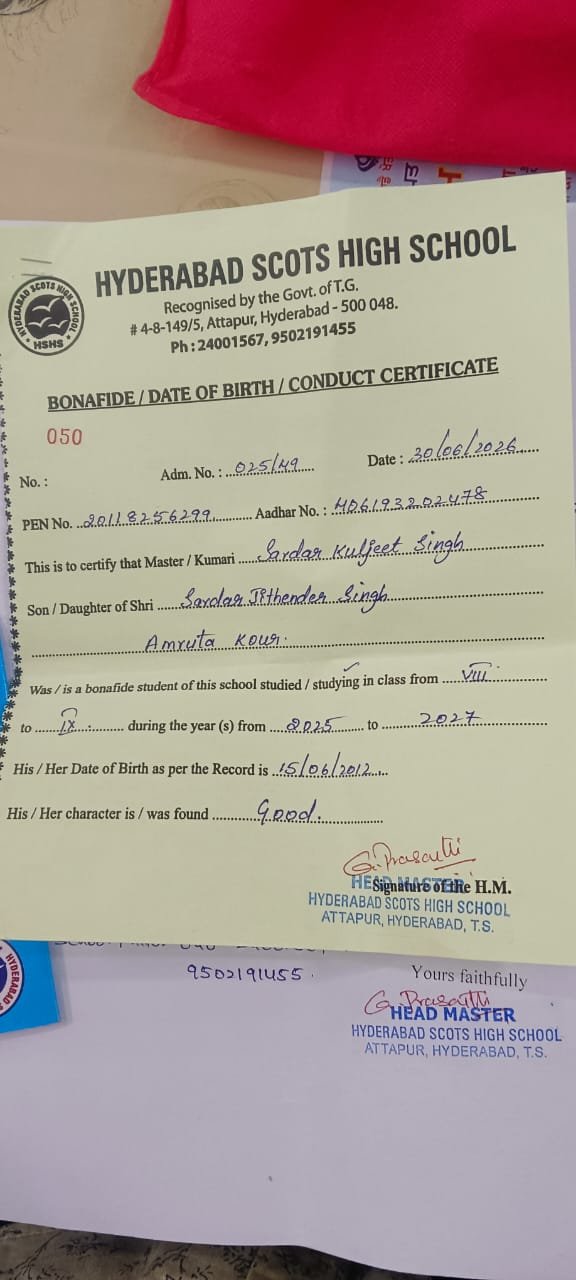 HYDERABAD SCOTS HIGH SCHOOL
HSHS
HYDERABAD SCOTS HIGH SCHOOL
Recognised by the Govt. of T.G.
# 4-8-149/5, Attapur, Hyderabad - 500 048.
Ph : 24001567, 9502191455
BONAFIDE / DATE OF BIRTH / CONDUCT CERTIFICATE
050
No. : Adm. No. : 025/49 Date : 30/06/2026
PEN No. 20118256299 Aadhar No. :
This is to certify that Master / Kumari Sardar Kuljeet Singh
Son / Daughter of Shri Sardar Jithender Singh
Amruta Kour.
Was / is a bonafide student of this school studied / studying in class from VIII
to IX during the year (s) from 2025 to 2027
His / Her Date of Birth as per the Record is 15/06/2012
His / Her character is / was found Good.
G. Prasanthi
HEAD MASTER
Signature of the H.M.
HYDERABAD SCOTS HIGH SCHOOL
ATTAPUR, HYDERABAD, T.S.
9502191455.
Yours faithfully
G. Prasanthi
HEAD MASTER
HYDERABAD SCOTS HIGH SCHOOL
ATTAPUR, HYDERABAD, T.S.
HYDERABAD